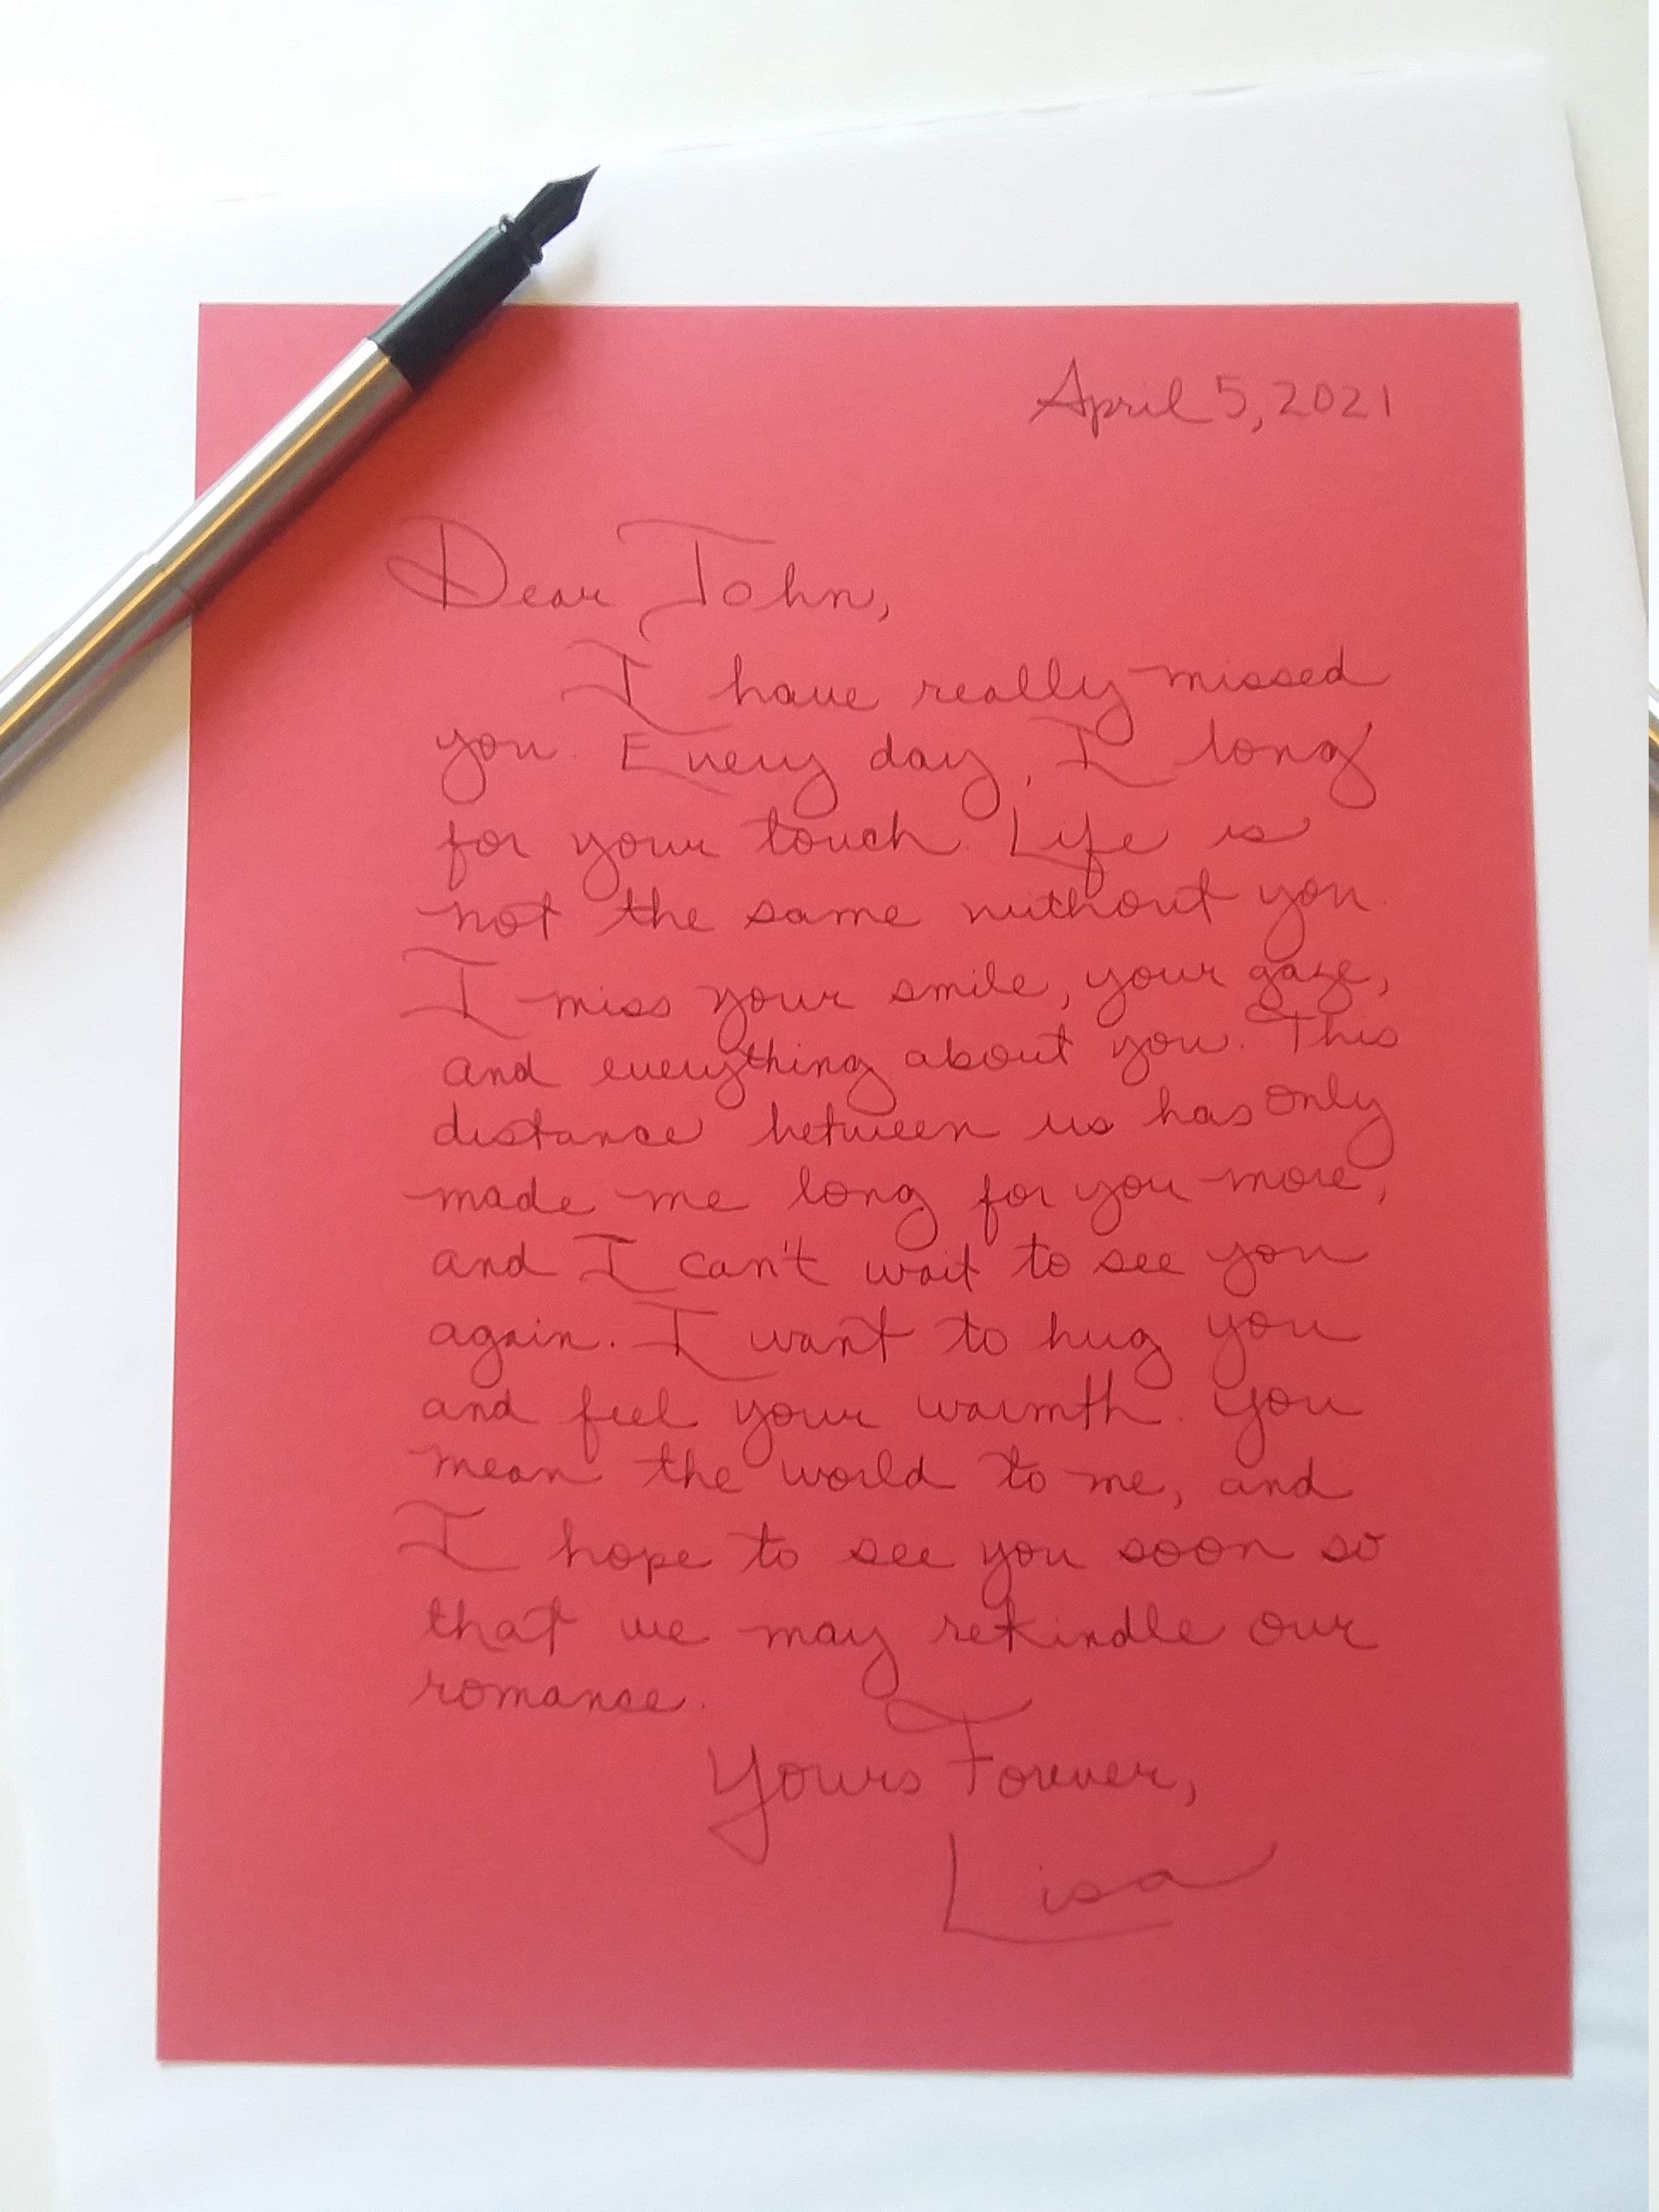 April 5, 2021
Dear John,
I have really missed
you. Every day, I long
for your touch. Life is
not the same without you.
I miss your smile, your gaze,
and everything about you. This
distance between us has only
made me long for you more,
and I can't wait to see you
again. I want to hug you
and feel your warmth. You
mean the world to me, and
I hope to see you soon so
that we may rekindle our
romance.
Yours Forever,
Lisa